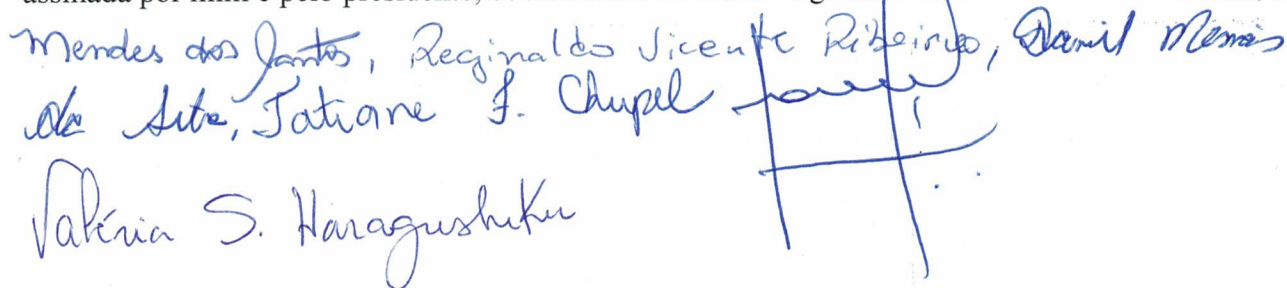 assinada por mim e pelo presidente,
Mendes dos Santos, Reginaldo Vicente Ribeiro, Daniel
da Tatiane F. Chupel
Valéria S. Haragushiku